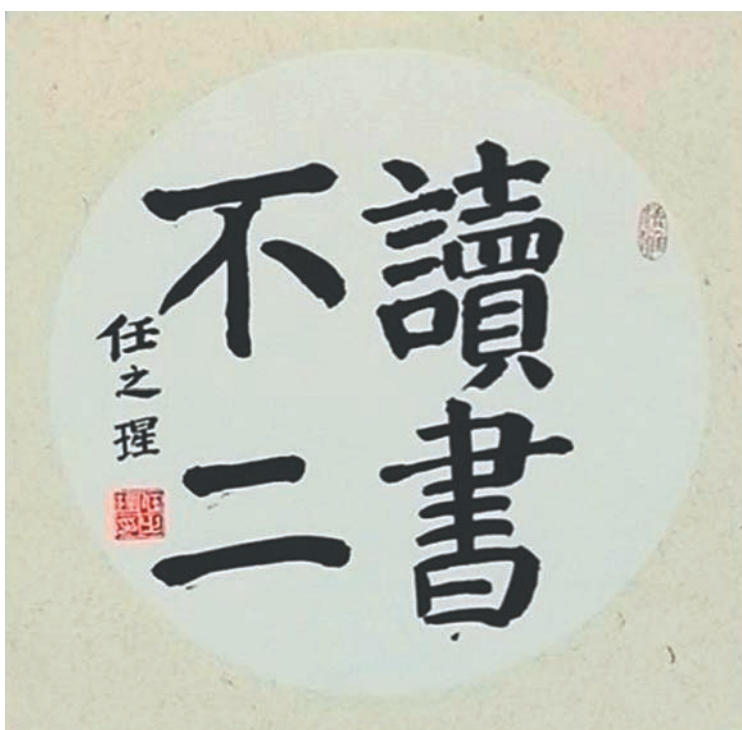 讀書
不二
任之瑆